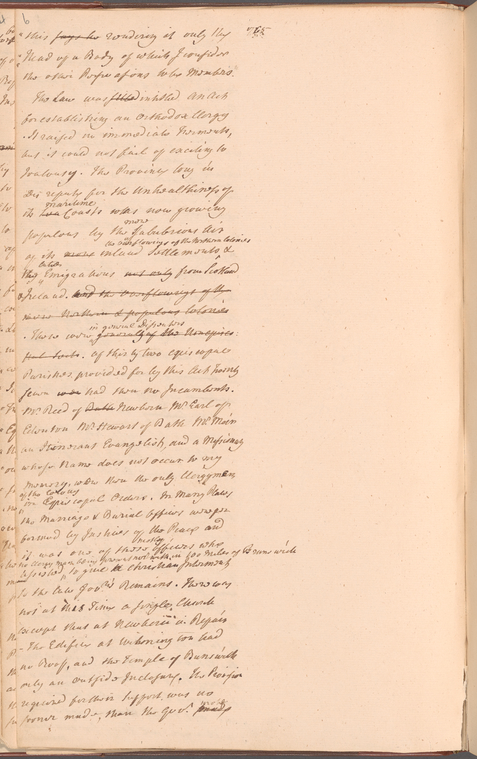 this rendering it only the
Head of a Body of which I consider
the other Professions to be Members.
The Law was intitled an Act
for establishing an Orthodox Clergy
. It raised no immediate Ferments,
but it could not fail of exciting to
Jealousy. The Province long in
Dis repute for the Unhealthiness of
maritime
its Coasts was now growing
more
populous by the Salubrious Air
as overflowings of the Northern Colonies
of its more inland Settlements, &
Emigrations not only from Scotland
Ireland. And the overflowings of the
more Northern & populous Colonies
in general Dissenters
. These were generally of the
. Of thirty two episcopal
Parishes provided for by this Act Twenty
seven had then no Incumbents.
Mr. Reed of Bath Newbern Mr. Earl of
Edenton Mr. Stewart of Bath Mr. Moir
an Itinerant Evangelist, and a Missionary
whose Name does not occur to my
memory, were then the only Clergymen
of the Colony
in Episcopal Orders. In Many Places
the Marriage & Burial Offices were per
formed by Justices of the Peace and
it was one of these Officers who
no Clergyman being within 100 Miles of Brunswick
assisted to give a Christian Interment
to the late Govr's Remains. There was
not at this Time a single Church
except that at Newbern in Repair
The Edifice at Wilmington had
no Roof, and the Temple of Brunswick
only an outside Inclosure. The Provision
required for their Support was no
sooner made, than the Govr.